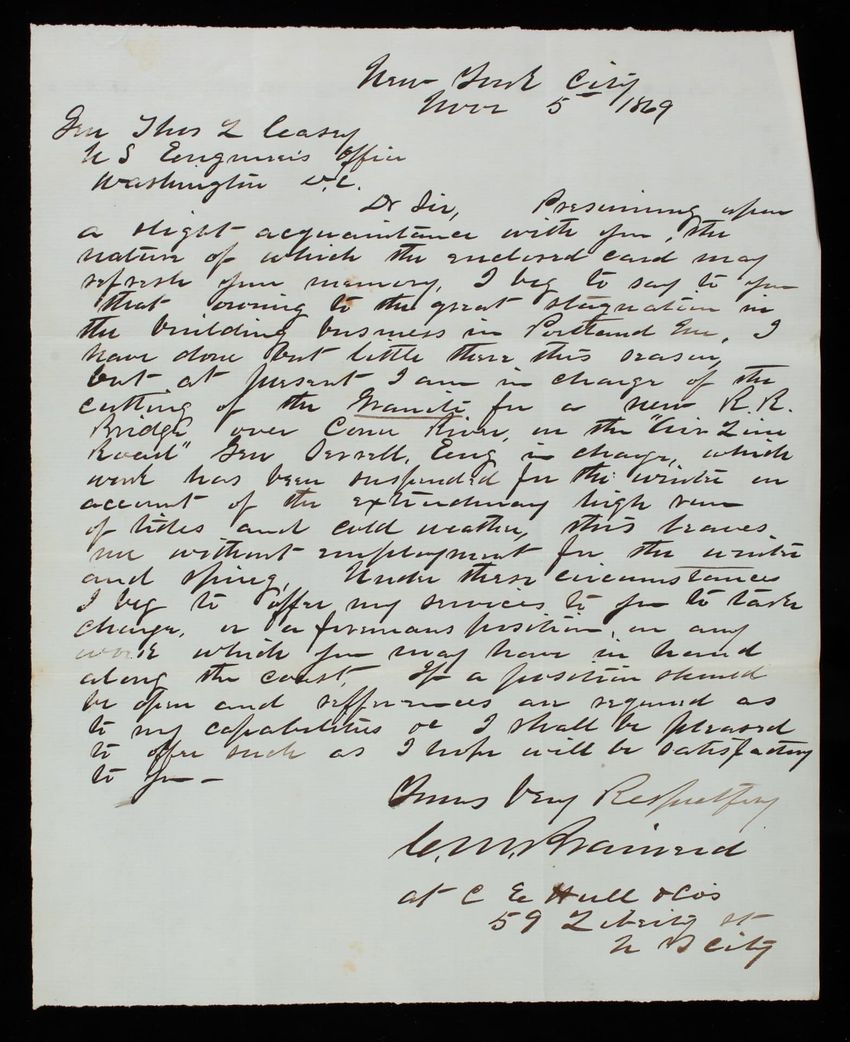 New York City
Nov 5 1869
Gen Thos L Casey
U S Engineers Office
Washington D.C.
Dr Sir, Presuming upon
a slight acquaintance with you, the
nature of which the enclosed card may
refresh your memory, I beg to say to you
that owing to the great stagnation in
the building business in Portland Me, I
have done but little there this season,
but at present I am in charge of the
cutting of the Granite for a new R.R.
Bridge over Conn River, on the "Air Line
Road" Gen Serrell, Eng in charge, which
work has been suspended for the winter on
account of the extraordinary high run
of tides and cold weather, this leaves
me without employment for the winter
and spring, Under these circumstances
I beg to offer my services to you to take
charge, or a foremans position, on any
work which you may have in hand
along the coast. If a position should
be open and refferences are required as
to my capabilities &c I shall be pleased
to offer such as I hope will be satisfactory
to you -
Yours Very Respectfuly
C. M. Brainerd
at C E Hull & Co's
59 Liberty st
N Y City